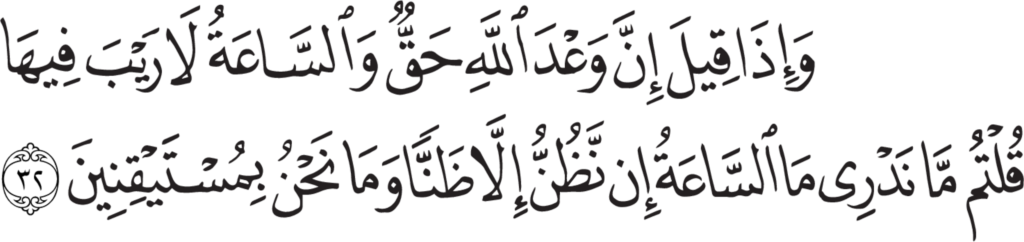 وَإِذَا قِيلَ إِنَّ وَعْدَ ٱللَّهِ حَقٌّ وَٱلسَّاعَةُ لَا رَيْبَ فِيهَا
قُلْتُم مَّا نَدْرِى مَا ٱلسَّاعَةُ إِن نَّظُنُّ إِلَّا ظَنًّا وَمَا نَحْنُ بِمُسْتَيْقِنِينَ ٣٢